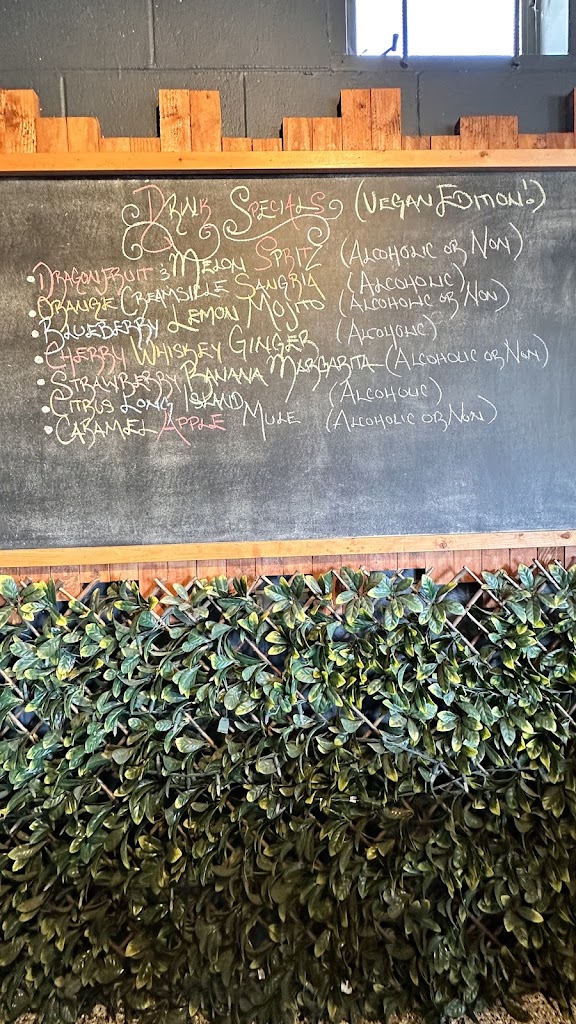 Drink Specials (Vegan Edition!)
• Dragonfruit & Melon Spritz (Alcoholic or Non)
• Orange Creamsicle Sangria (Alcoholic)
• Blueberry Lemon Mojito (Alcoholic or Non)
• Cherry Whiskey Ginger (Alcoholic)
• Strawberry Banana Margarita (Alcoholic or Non)
• Citrus Long Island (Alcoholic)
• Caramel Apple Mule (Alcoholic or Non)